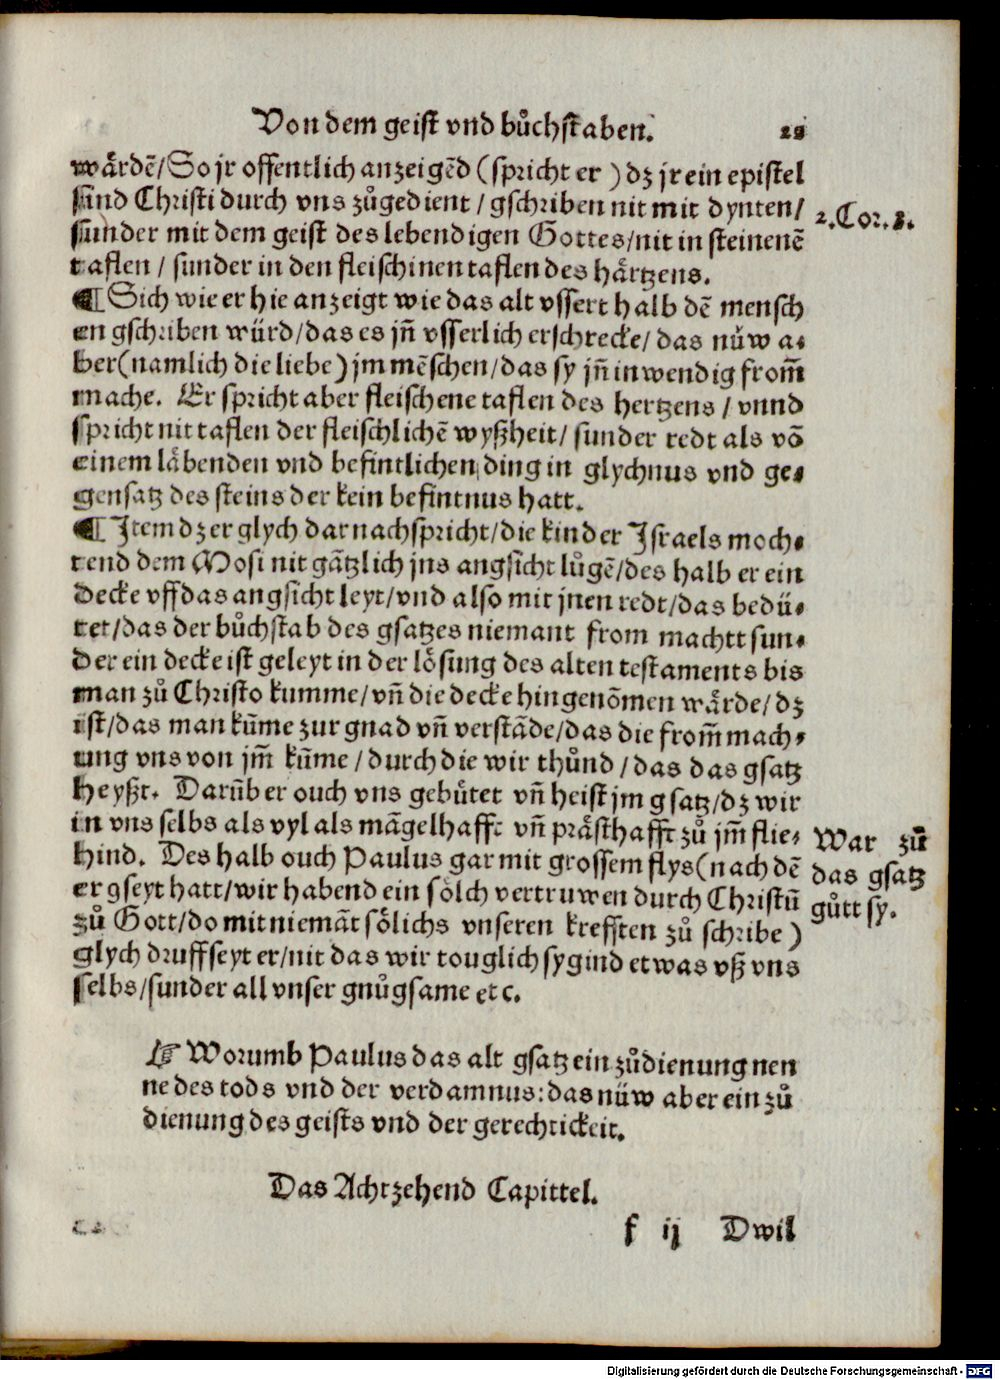 Von dem geist vnd bůchstaben.
wårdẽ/So jr offentlich anzeigẽd (spricht er) dz jr ein epistel
sind Christi durch vns zůgedient/gschriben nit mit dynten/
2.Cor.3.
sunder mit dem geist des lebendigen Gottes/nit in steinenẽ
taflen/sunder in den fleischinen taflen des hårtzens.
¶ Sich wie er hie anzeigt wie das alt vssert halb dẽ mensch
en gschriben würd/das es jn̄ vsserlich erschrecke/das nüw a⸗
ber(namlich die liebe)jm mẽschen/das sy jn̄ inwendig from̄
mache. Er spricht aber fleischene taflen des hertzens/vnnd
spricht nit taflen der fleischlichẽ wyßheit/sunder redt als võ
einem låbenden vnd befintlichen ding in glychnus vnd ge⸗
gensatz des steins der kein befintnus hatt.
¶ Item dz er glych darnach spricht/die kinder Israels moch⸗
tend dem Mosi nit gãtzlich jns angsicht lůgẽ/deshalb er ein
decke vff das angsicht leyt/vnd also mit jnen redt/das bedü⸗
tet/das der bůchstab des gsatzes niemant from machtt sun⸗
der ein decke ist geleyt in der lösung des alten testaments bis
man zů Christo kumme/vn̄ die decke hingenõmen wårde/dz
ist/das man kũme zur gnad vn̄ verstãde/das die from̄mach⸗
ung vns von jm̄ kũme/durch die wir thůnd/das das gsatz
heyßt. Darũb er ouch vns gebütet vn̄ heist jm gsatz/dz wir
in vns selbs als vyl als mãgelhafft vn̄ pråsthafft zů jm̄ flie⸗
hind. Deshalb ouch Paulus gar mit grossem flys(nach dẽ
er gseyt hatt/wir habend ein sölch vertruwen durch Christũ
zů Gott/do mit niemãt sölichs vnseren krefften zů schribe)
glych druff seyt er/nit das wir touglich sygind etwas vß vns
selbs/sunder all vnser gnůgsame etc.
War zů
das gsatz
gůtt sy.
☞ Worumb Paulus das alt gsatz ein zůdienung nen
ne des tods vnd der verdamnus: das nüw aber ein zů
dienung des geists vnd der gerechtickeit.
Das Achtzehend Capittel.
f ij Dwil
Digitalisierung gefördert durch die Deutsche Forschungsgemeinschaft - DFG